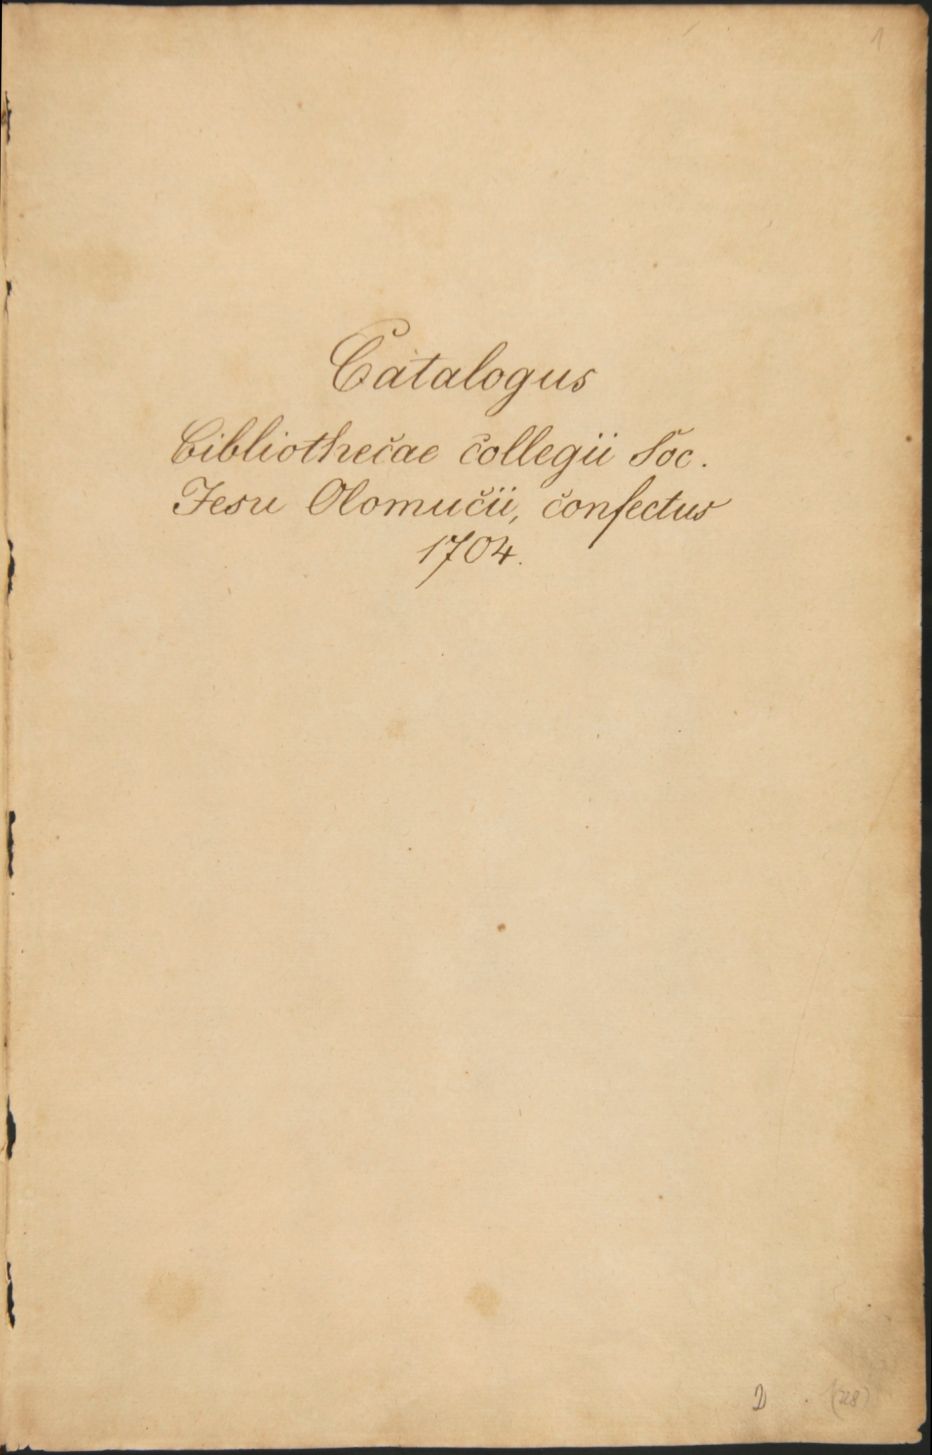 1
Catalogus
Bibliothecae collegii Soc.
Jesu Olomucii, confectus
1704.
D